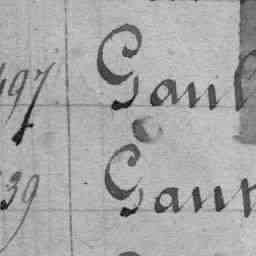 497 Gaul
39 Gaur